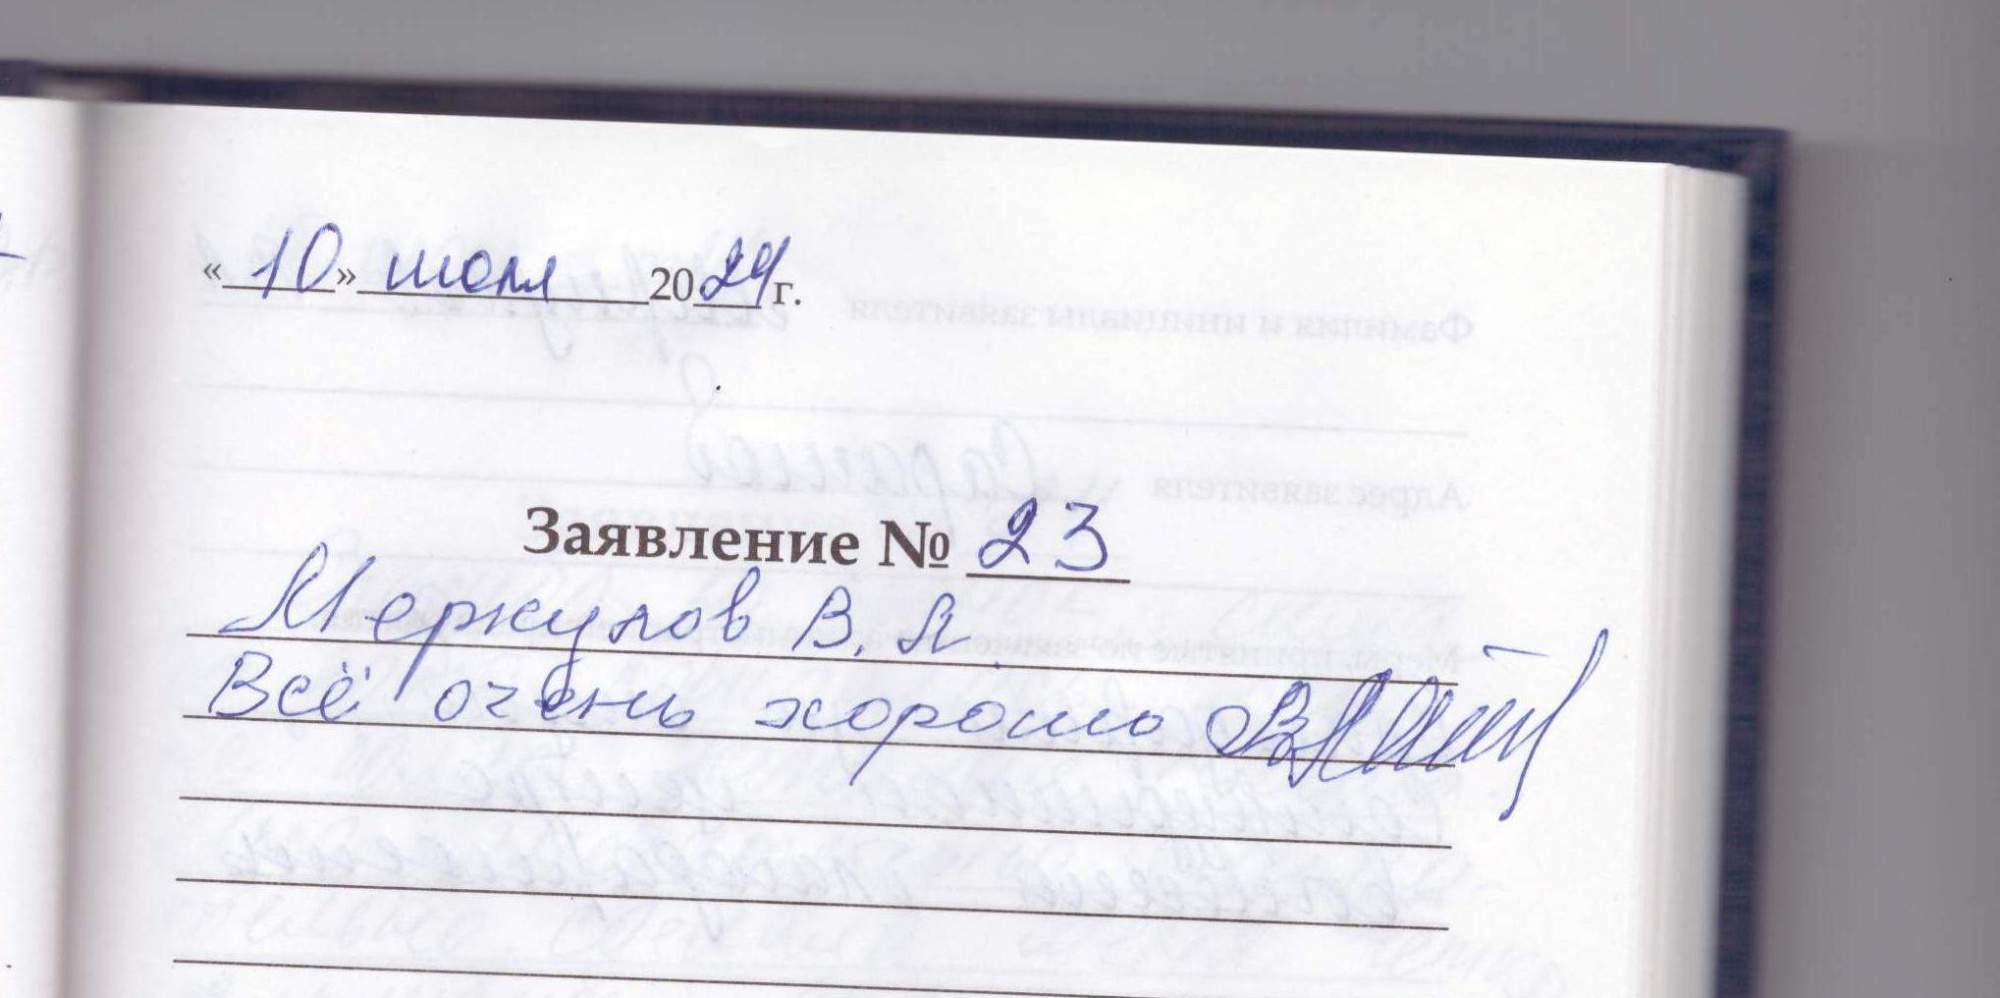 «10» июля 2024 г.
Заявление № 23
Меркулов В. А.
Всё очень хорошо